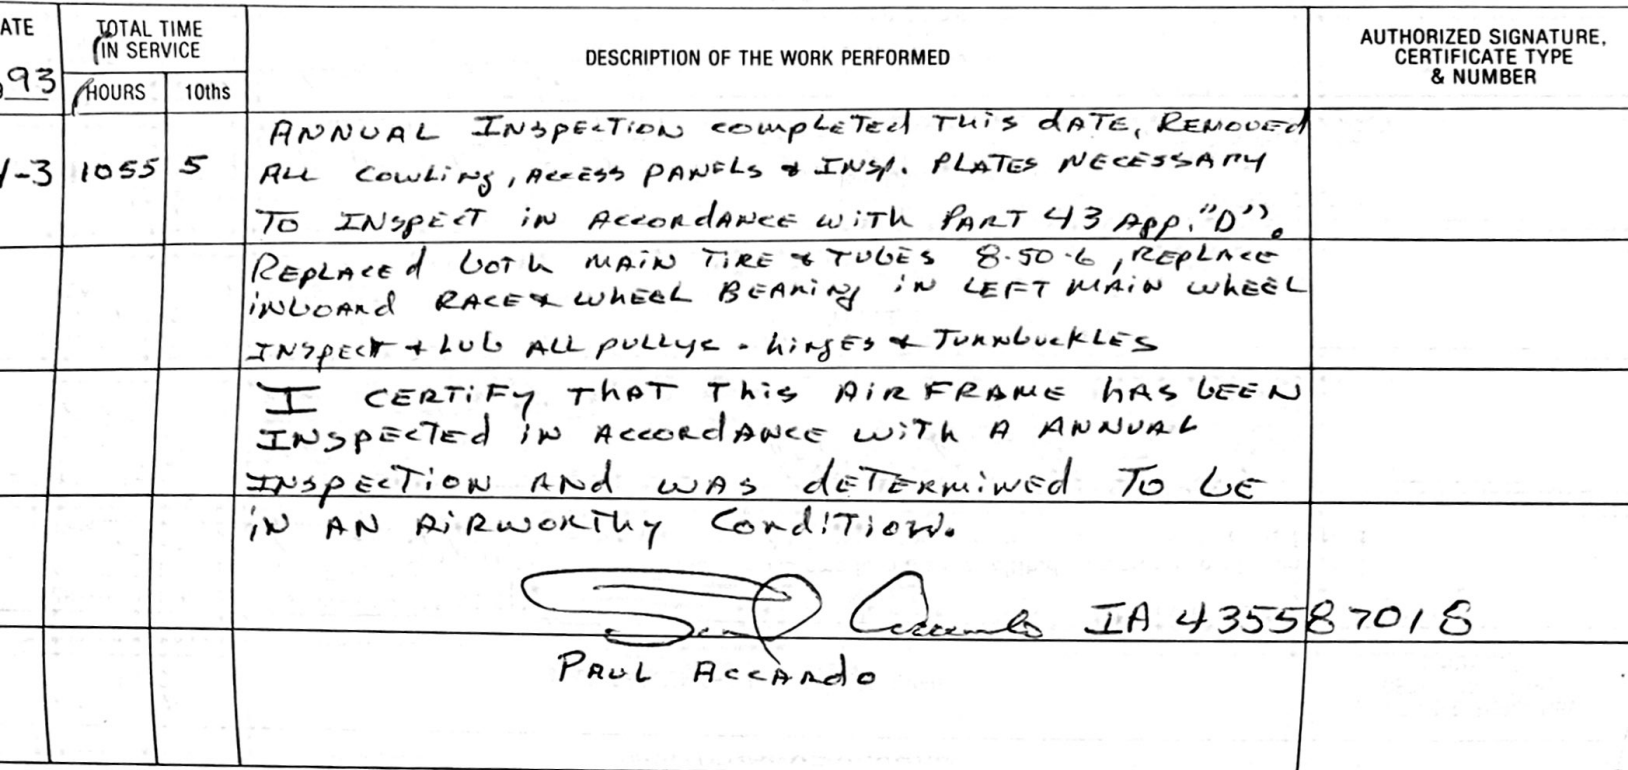 ATE
93
TOTAL TIME
IN SERVICE
HOURS 10ths
DESCRIPTION OF THE WORK PERFORMED
AUTHORIZED SIGNATURE,
CERTIFICATE TYPE
& NUMBER
ANNUAL INSPECTION completed This dATE, REMOVED
-3 1055 5 ALL cowLing, ACCESS PANELS & INSP. PLATES NECESSARY
TO INSPECT iN ACCORDANCE wiTh PART 43 App. "D".
REPLACEd boTh MAIN TIRE & TUBES 8.50-6, REPLACE
iNboARd RACE & WhEEL BEARiNg iN LEFT MAIN WhEEL
INSPECT & LUb ALL pullys - hiNgES & TURNbuckLES
I CERTiFy ThAT This AiRFRAME hAS bEEN
INSPECTEd iN ACCORdANCE wiTh A ANNUAL
INSPECTiON ANd WAS dETERMiNEd TO bE
iN AN AiRWORThy CondiTiON.
Paul Accardo IA 435587018
PAUL ACCARdo